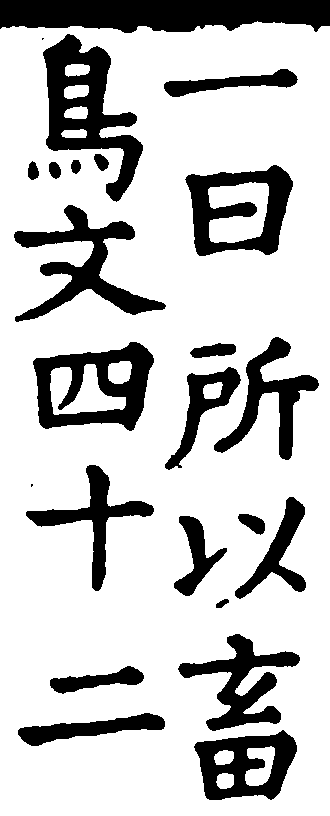 一曰所以畜
鳥文四十二